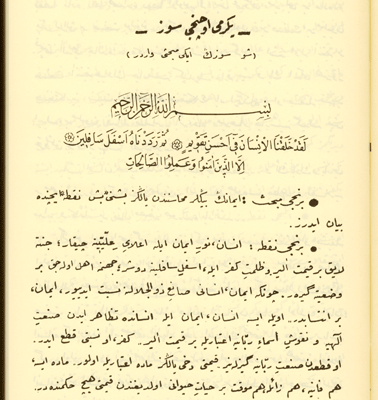 ـ يكرمى اوچنجى سوز ـ
( شو سوزك ايكى مبحثى واردر )
بِسْمِ اللّٰهِ الرَّحْمٰنِ الرَّحِيمِ
لَقَدْ خَلَقْنَا الْاِنْسَانَ فِى اَحْسَنِ تَقْوِيمٍ ۞ ثُمَّ رَدَدْنَاهُ اَسْفَلَ سَافِلِينَ ۞
اِلَّا الَّذِينَ اٰمَنُوا وَعَمِلُوا الصَّالِحَاتِ
● برنجى مبحث : ايمانك بيڭلر محاسنندن يالڭز بشنى بش نقطه ايچنده
بيان ايدرز .
● برنجى نقطه : انسان ، نور ايمان ايله اعلاى عليّينه چيقار ؛ جنته
لايق بر قيمت آلير . و ظلمت كفر ايله ، اسفل سافلينه دوشر ؛ جهنمه اهل اوله جق بر
وضعيته گيرر . چونكه ايمان ، انسانى صانع ذوالجلالنه نسبت ايدييور . ايمان ،
بر انتسابدر . اويله ايسه انسان ، ايمان ايله انسانده تظاهر ايدن صنعت
الٰهيه و نقوش اسماء ربّانيه اعتباريله بر قيمت آلير . كفر ، او نسبتى قطع ايدر .
او قطعدن صنعت ربّانيه گيزلنير . قيمتى دخى يالڭز ماده اعتباريله اولور . ماده ايسه ،
هم فانيه ، هم زائله ، هم موقت بر حيات حيوانى اولديغندن قيمتى هيچ حكمنده در .